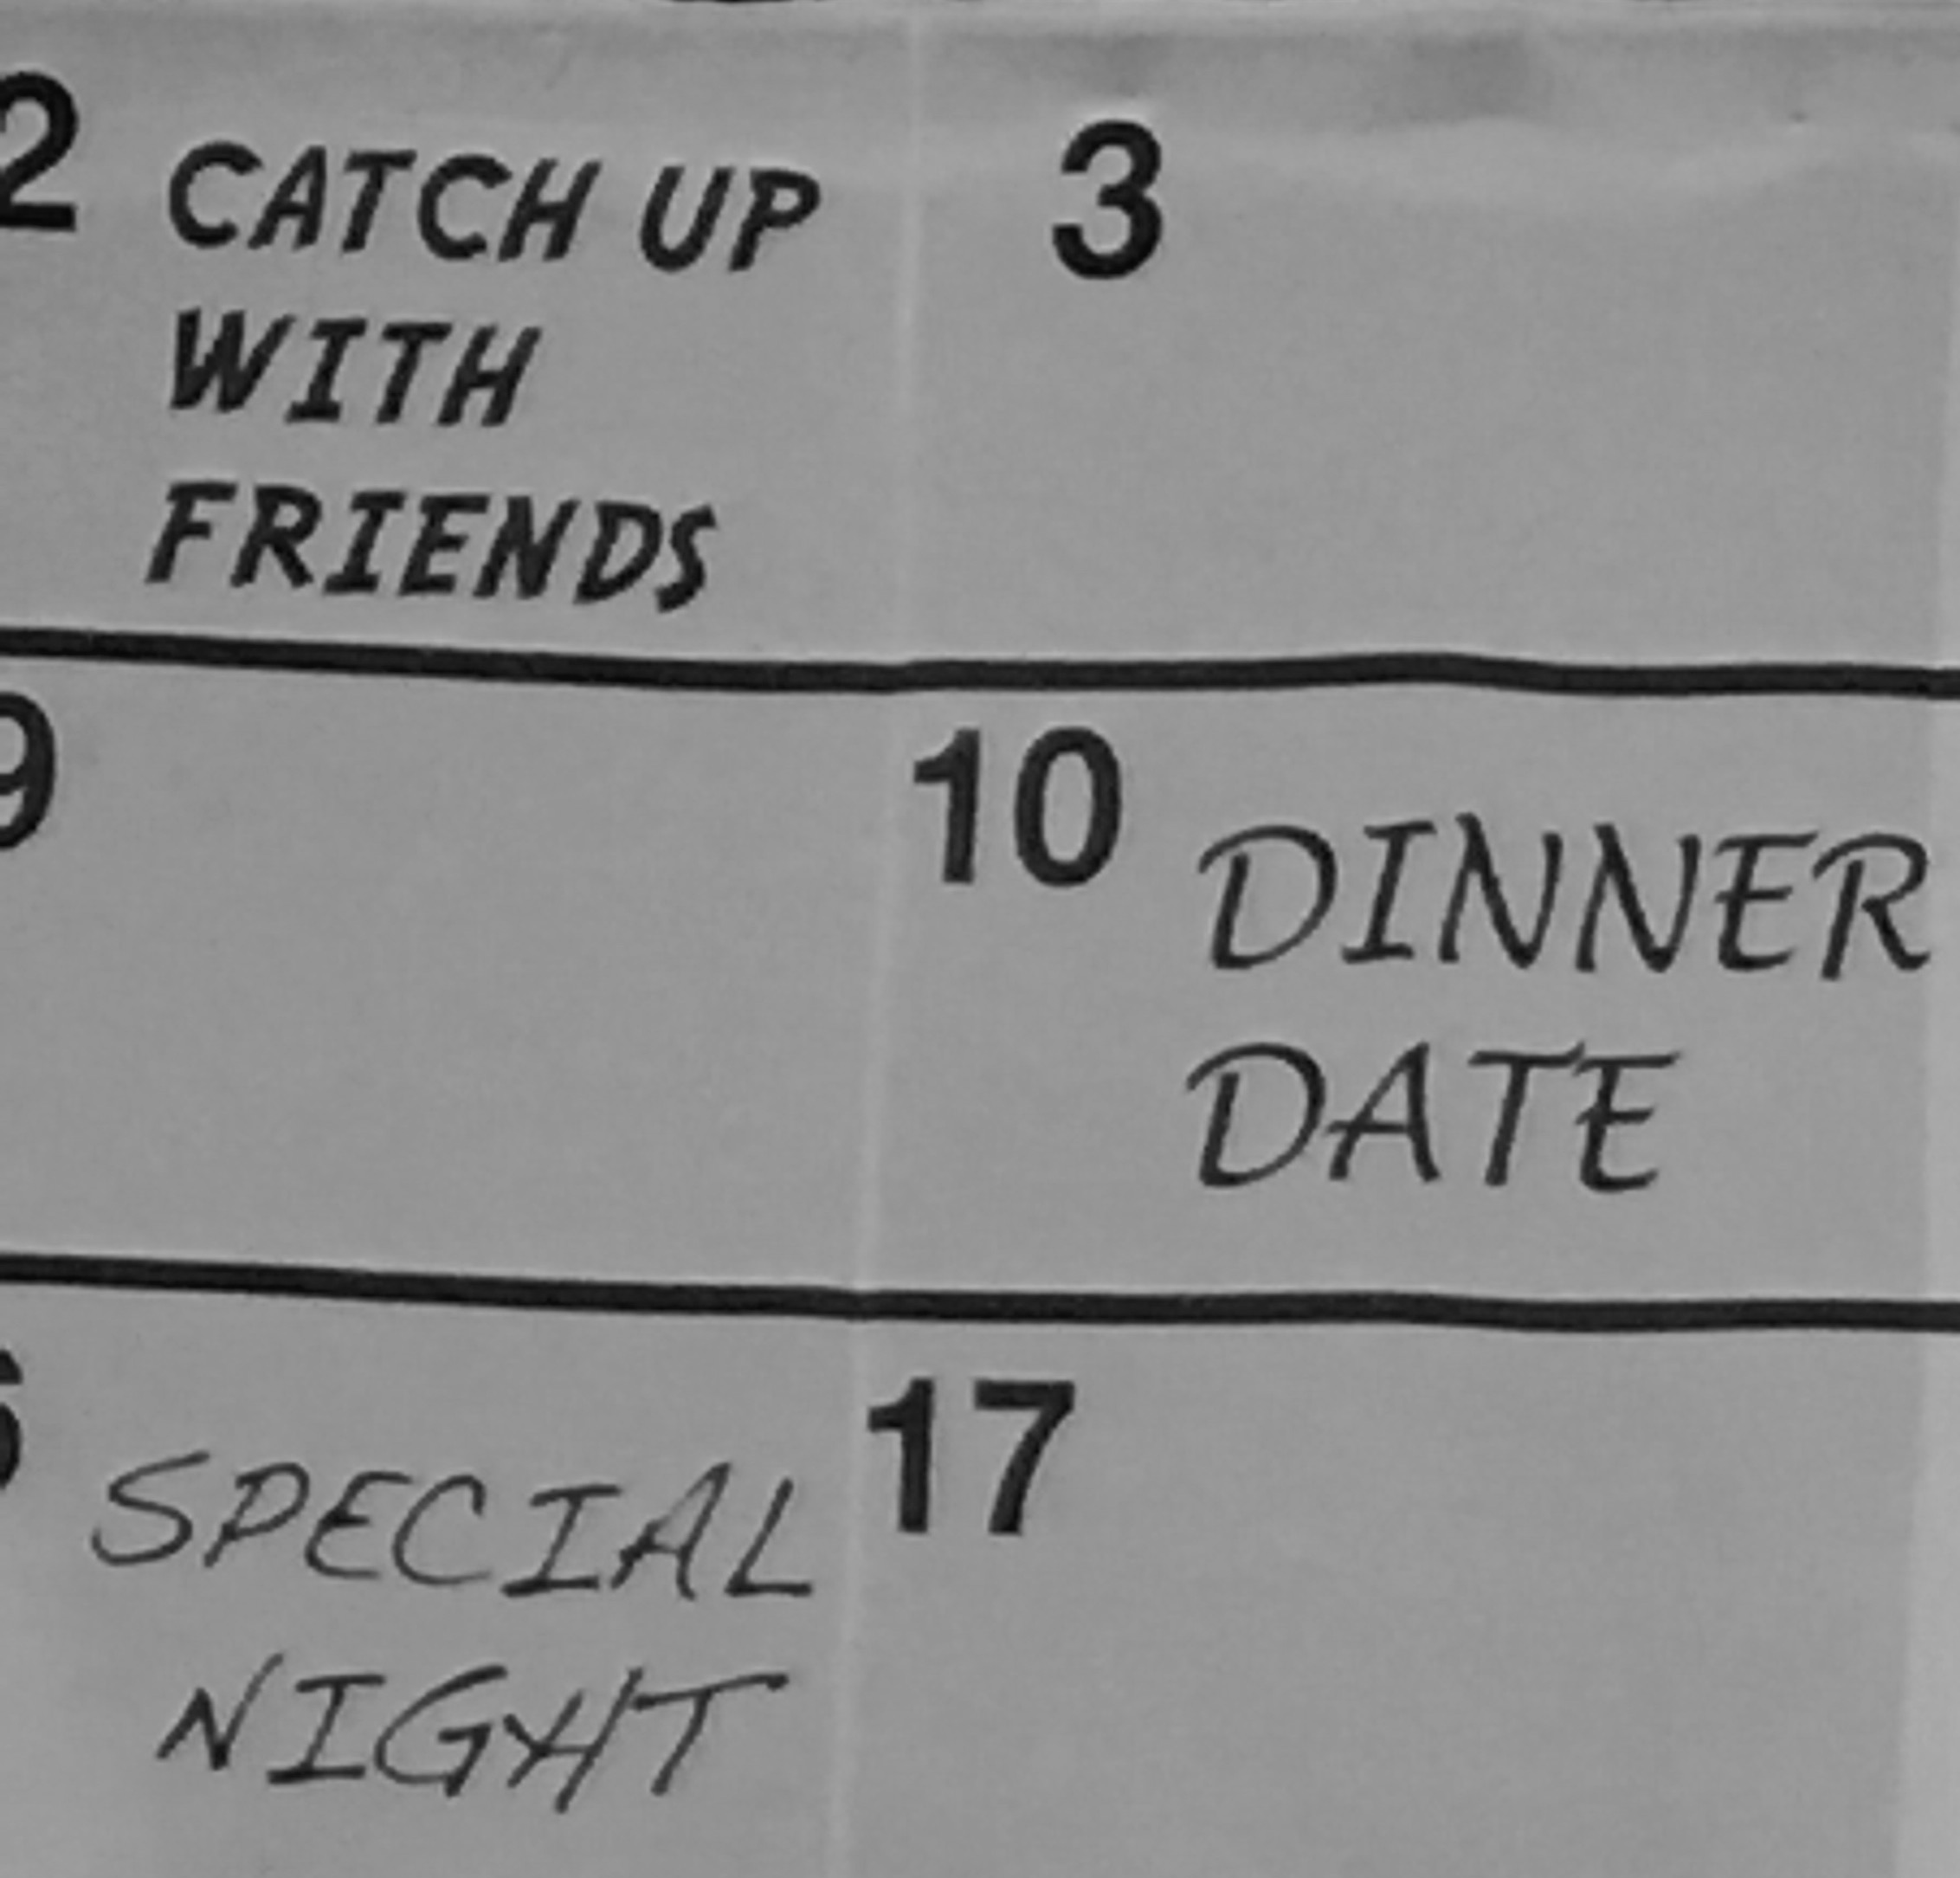 2 CATCH UP
WITH
FRIENDS
3
9
10 DINNER
DATE
6 SPECIAL
NIGHT
17